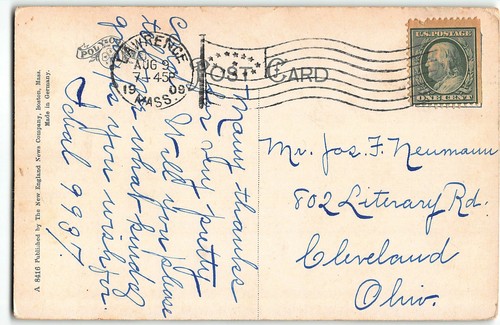 POST CARD
POLYCHROME
LAWRENCE
AUG 9
7-45P
1909
MASS.
U.S. POSTAGE
ONE CENT
Many thanks
for very pretty
Will you please
me what kind of
you wish for.
Ideal 9987.
Mr. Jos. F. Neumann
802 Literary Rd.
Cleveland
Ohio.
A 8416 Published by The New England News Company, Boston, Mass.
Made in Germany.